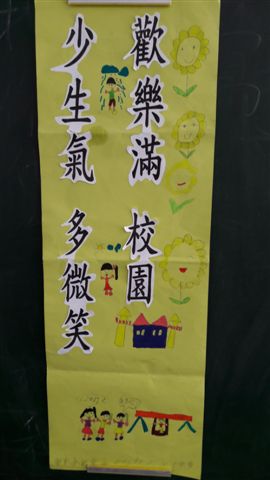 歡樂滿校園
少生氣多微笑